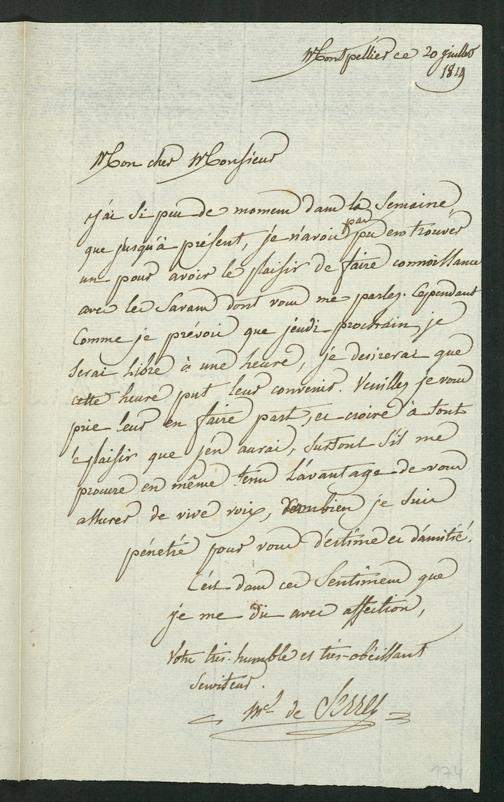 Montpellier ce 20 juillet
1819
Mon cher Monsieur
j'ai si peu de momens dans la semaine
que jusqu'à présent, je n'avois pas pu en trouver
un pour avoir le plaisir de faire connoissance
avec les savans dont vous me parlez. Cependant
comme je prévois que jeudi prochain je
serai libre à une heure, je desirerai que
cette heure put leur convenir. Veuillez je vous
prie leur en faire part, et croire à tout
le plaisir que j'en aurai, surtout s'il me
procure en même tems l'avantage de vous
assurer de vive voix, combien je suis
pénétré pour vous d'estime et d'amitié.
C'est dans ces sentimens que
je me dis avec affection,
Votre très-humble et très-obéissant
serviteur.
Mel de Serres
174